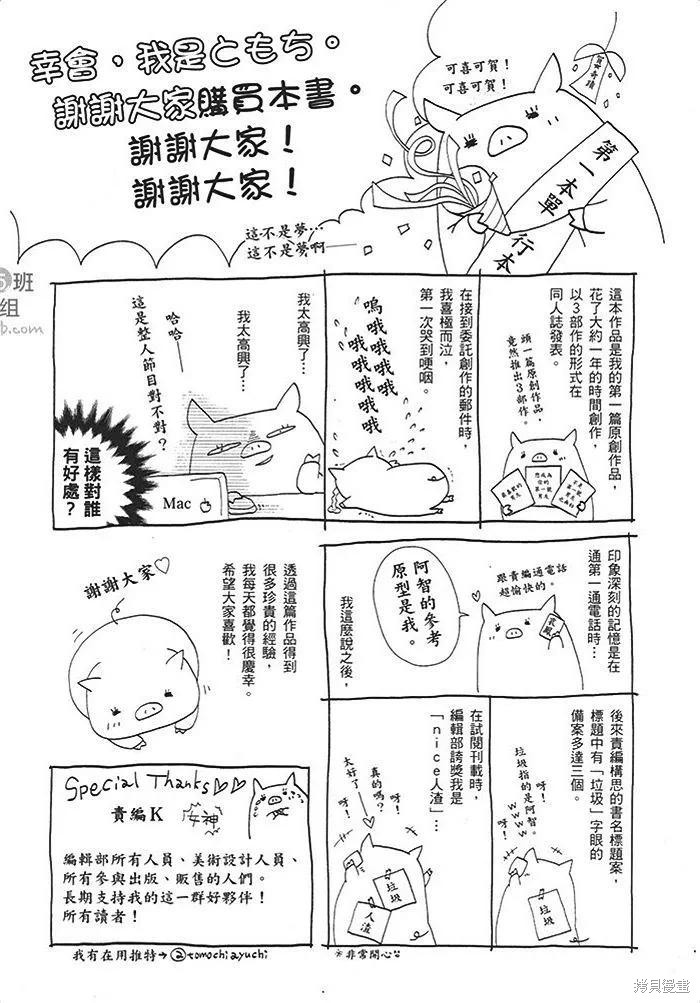 幸會，我是ともち。
謝謝大家購買本書。
謝謝大家！
謝謝大家！
可喜可賀！
可喜可賀！
第一本單
行本
這不是夢…
這不是夢啊——
這本作品是我的第一篇原創作品，
花了大約一年的時間創作，
以3部作的形式在
同人誌發表。
頭一篇原創作品，
竟然推出3部作。
在接到委託創作的郵件時，
我喜極而泣，
第一次哭到哽咽。
嗚哦哦哦
哦哦哦哦
哦哦哦哦
我太高興了…
我太高興了…
哈哈——
這是整人節目對不對？
Mac
這樣對誰
有好處？
印象深刻的記憶是在
通第一通電話時…
跟責編通電話
超愉快的。
阿智的參考
原型是我。
我這麼說之後，
後來責編構思的書名標題案，
標題中有「垃圾」字眼的
備案多達三個。
垃圾指的是阿智。
呀！wwww
呀！
垃圾
在試閱刊載時，
編輯部誇獎我是
「nice人渣」…
呀！
真的嗎？
太好了——
呀！
垃圾
人渣
*非常開心
透過這篇作品得到
很多珍貴的經驗，
我每天都覺得很慶幸。
希望大家喜歡！
謝謝大家♡
Special Thanks♡♡
責編K
女神
編輯部所有人員、美術設計人員、
所有參與出版、販售的人們。
長期支持我的這一群好夥伴！
所有讀者！
我有在用推特→@tomochiayuchi
班
组
b.com
拷貝漫畫